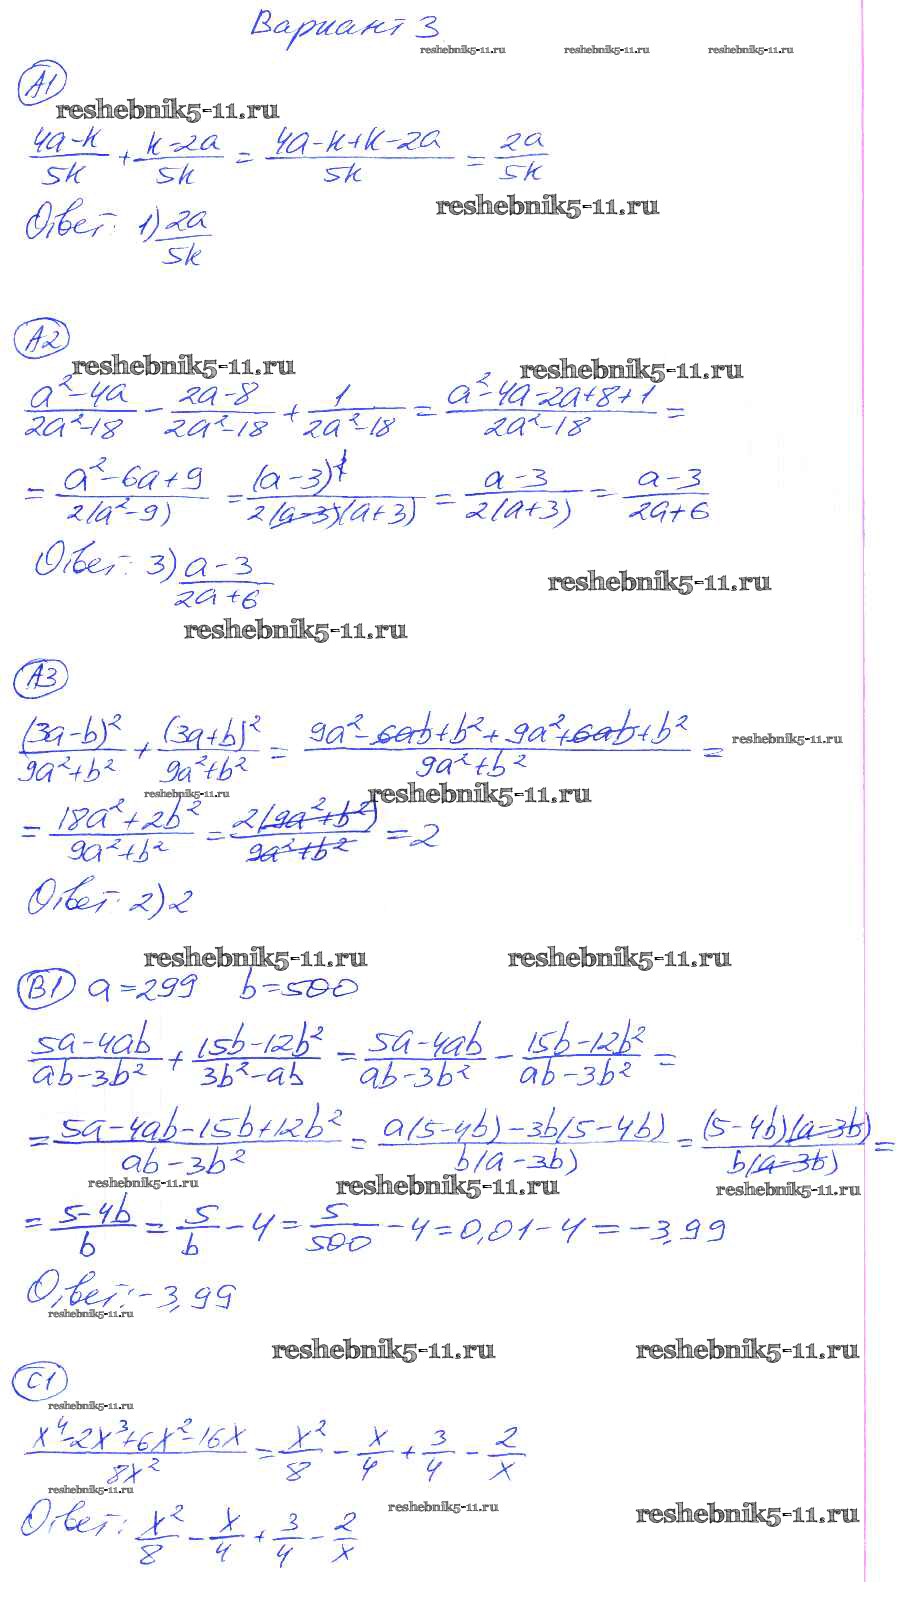 Вариант 3
reshebnik5-11.ru reshebnik5-11.ru reshebnik5-11.ru
А1
reshebnik5-11.ru
(4a-k)/(5k) + (k-2a)/(5k) = (4a-k+k-2a)/(5k) = 2a/(5k)
reshebnik5-11.ru
Ответ: 1) 2a/(5k)
А2
reshebnik5-11.ru reshebnik5-11.ru
(a²-4a)/(2a²-18) - (2a-8)/(2a²-18) + 1/(2a²-18) = (a²-4a-2a+8+1)/(2a²-18) =
= (a²-6a+9)/(2(a²-9)) = (a-3)²/(2(a-3)(a+3)) = (a-3)/(2(a+3)) = (a-3)/(2a+6)
Ответ: 3) (a-3)/(2a+6)
reshebnik5-11.ru
reshebnik5-11.ru
А3
(3a-b)²/(9a²+b²) + (3a+b)²/(9a²+b²) = (9a²-6ab+b²+9a²+6ab+b²)/(9a²+b²) =
reshebnik5-11.ru
reshebnik5-11.ru reshebnik5-11.ru
= (18a²+2b²)/(9a²+b²) = 2(9a²+b²)/(9a²+b²) = 2
Ответ: 2) 2
reshebnik5-11.ru reshebnik5-11.ru
В1 a=299 b=500
(5a-4ab)/(ab-3b²) + (15b-12b²)/(3b²-ab) = (5a-4ab)/(ab-3b²) - (15b-12b²)/(ab-3b²) =
= (5a-4ab-15b+12b²)/(ab-3b²) = (a(5-4b)-3b(5-4b))/(b(a-3b)) = (5-4b)(a-3b)/(b(a-3b)) =
reshebnik5-11.ru reshebnik5-11.ru reshebnik5-11.ru
= (5-4b)/b = 5/b - 4 = 5/500 - 4 = 0,01-4 = -3,99
Ответ: -3,99
reshebnik5-11.ru
reshebnik5-11.ru reshebnik5-11.ru
С1
reshebnik5-11.ru
(x⁴-2x³+6x²-16x)/(8x²) = x²/8 - x/4 + 3/4 - 2/x
reshebnik5-11.ru
reshebnik5-11.ru reshebnik5-11.ru
Ответ: x²/8 - x/4 + 3/4 - 2/x